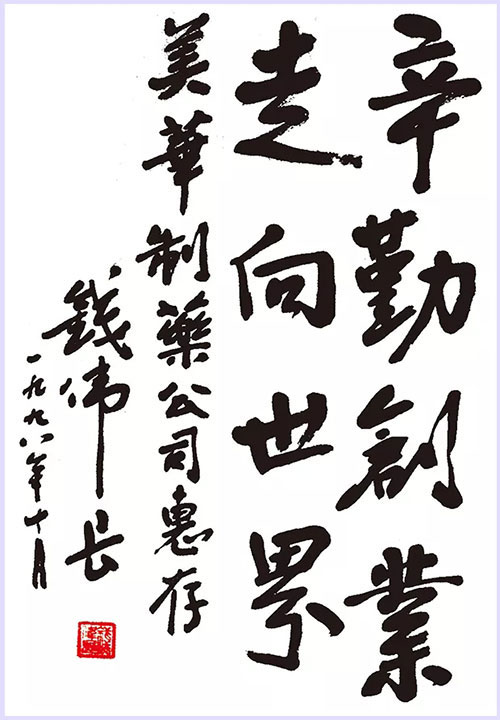 辛勤創業
走向世界
美華制藥公司惠存
錢偉长
一九九八年十月